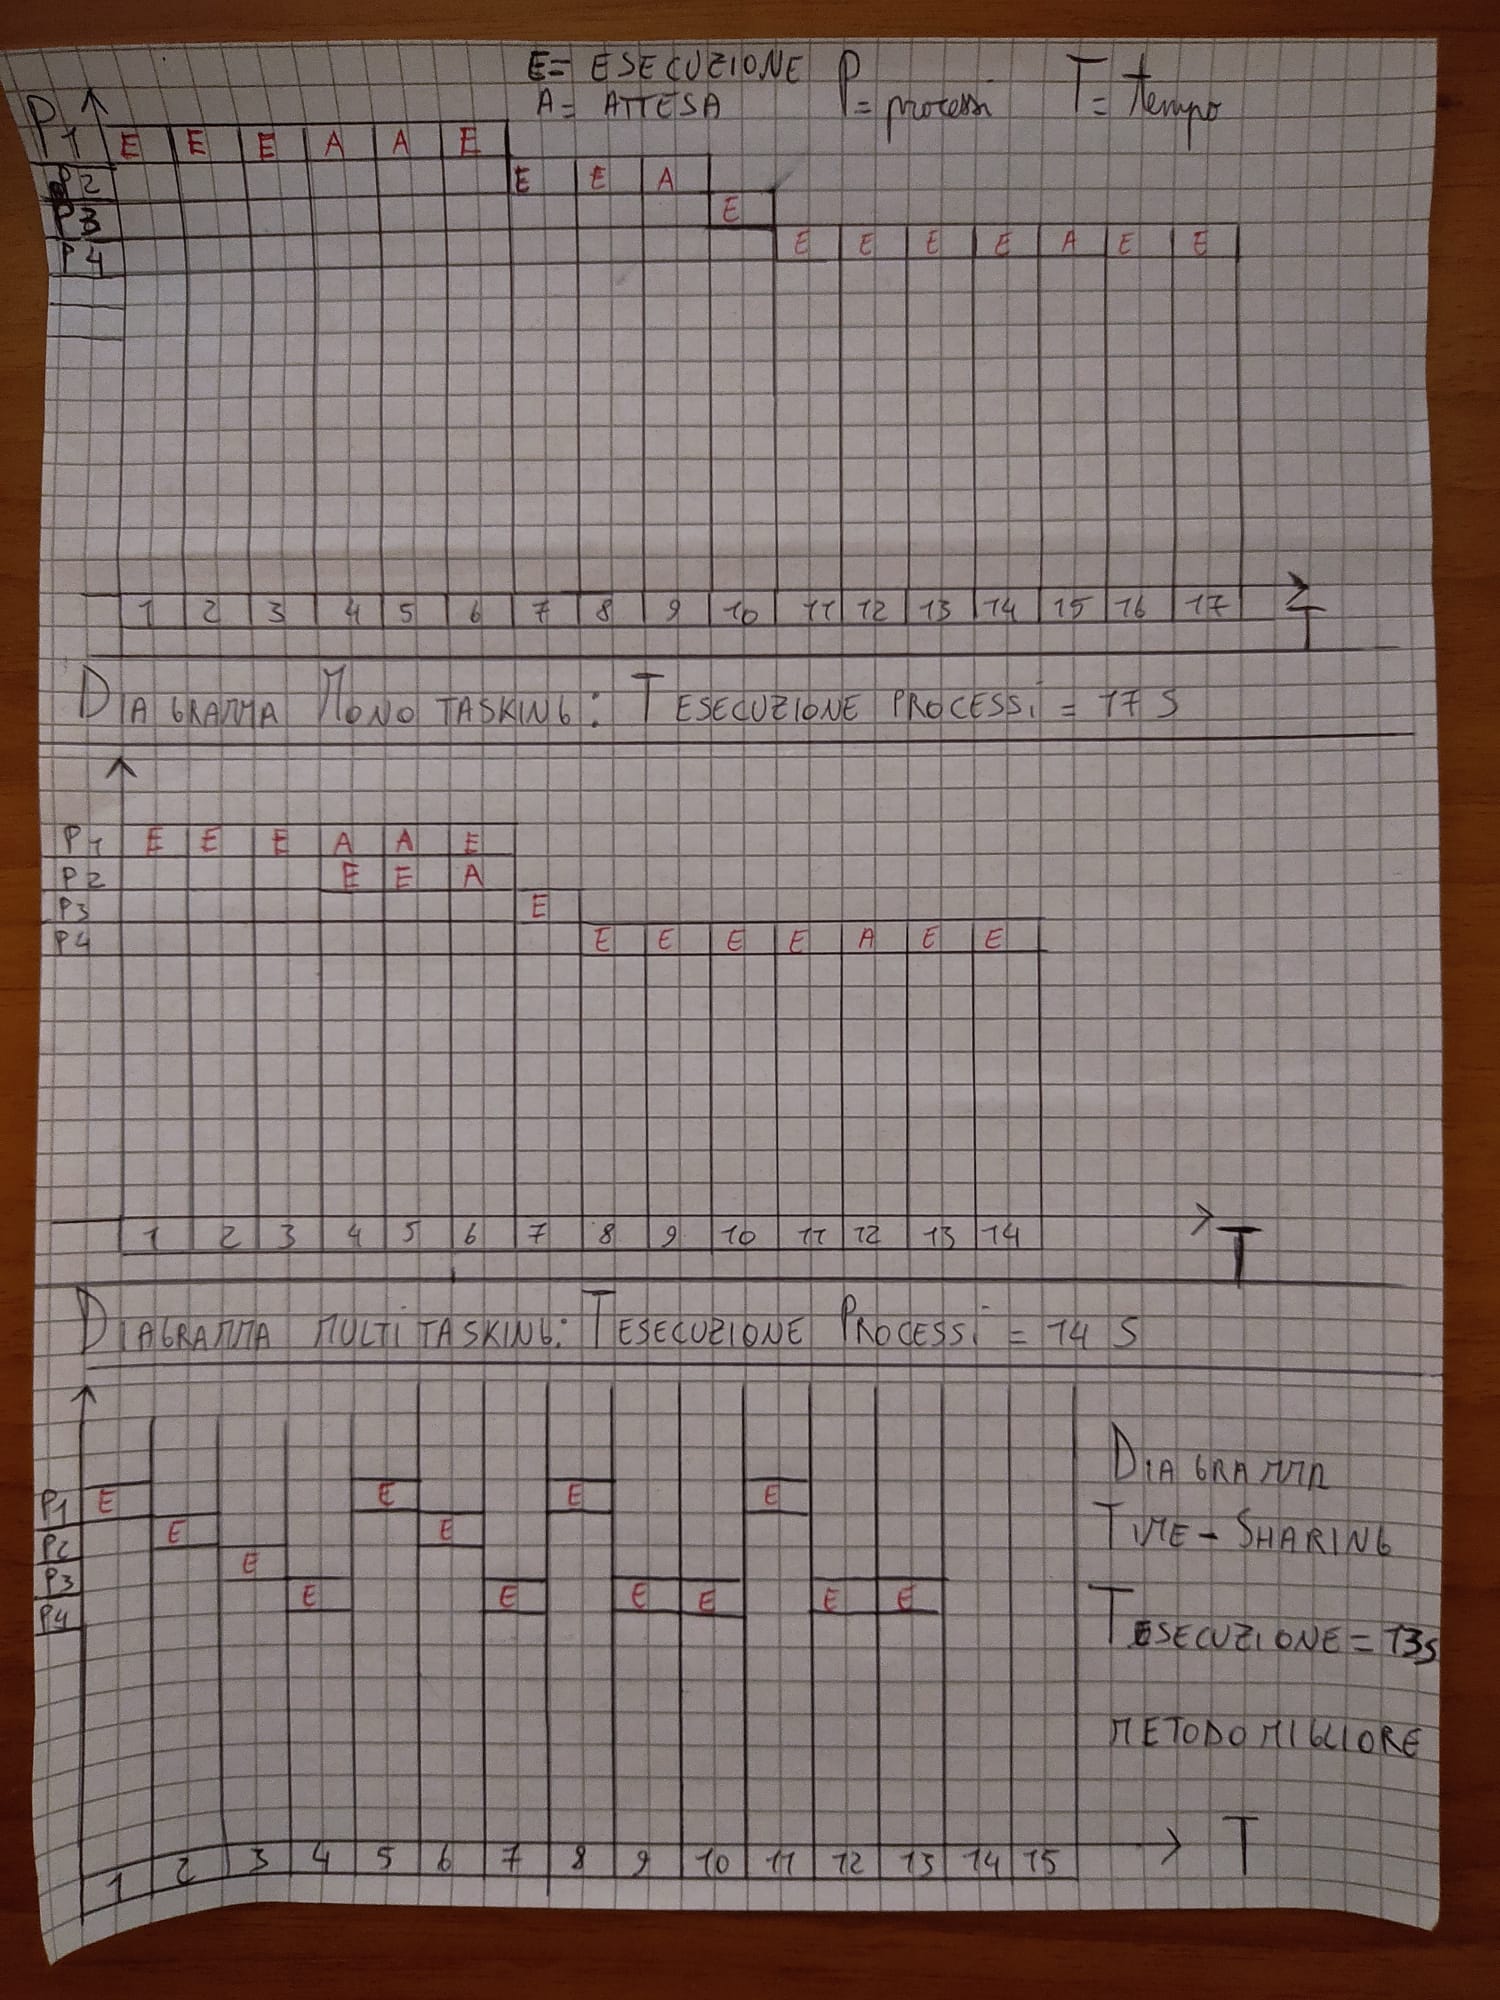 E= ESECUZIONE P = processi T= tempo
A= ATTESA
P1 E E E A A E
P2 E E A
P3 E
P4 E E E E A E E
1 2 3 4 5 6 7 8 9 10 11 12 13 14 15 16 17 T
DIAGRAMMA MONO TASKING: T ESECUZIONE PROCESSi = 17 S
P1 E E E A A E
P2 E E A
P3 E
P4 E E E E A E E
1 2 3 4 5 6 7 8 9 10 11 12 13 14 T
DIAGRAMMA MULTITASKING: T ESECUZIONE PROCESSi = 14 S
P1 E E E E
P2 E E
P3 E
P4 E E E E E E
DIAGRAMMA
TIME - SHARING
T ESECUZIONE = 13s
METODO MIGLIORE
1 2 3 4 5 6 7 8 9 10 11 12 13 14 15 T